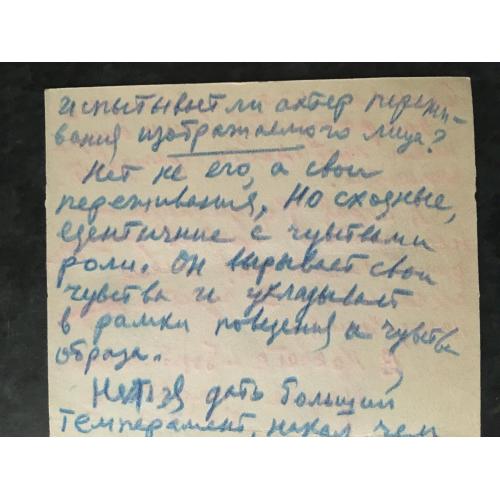 испытывает ли актер пережи-
вания изображаемого лица?
Нет не его, а свои
переживания, но сходные,
едентичние с чувствами
роли. Он вырывает свои
чувства и укладывает
в рамки поведения и чувства
образа.
Нельзя дать больший
темперамент, накал чем